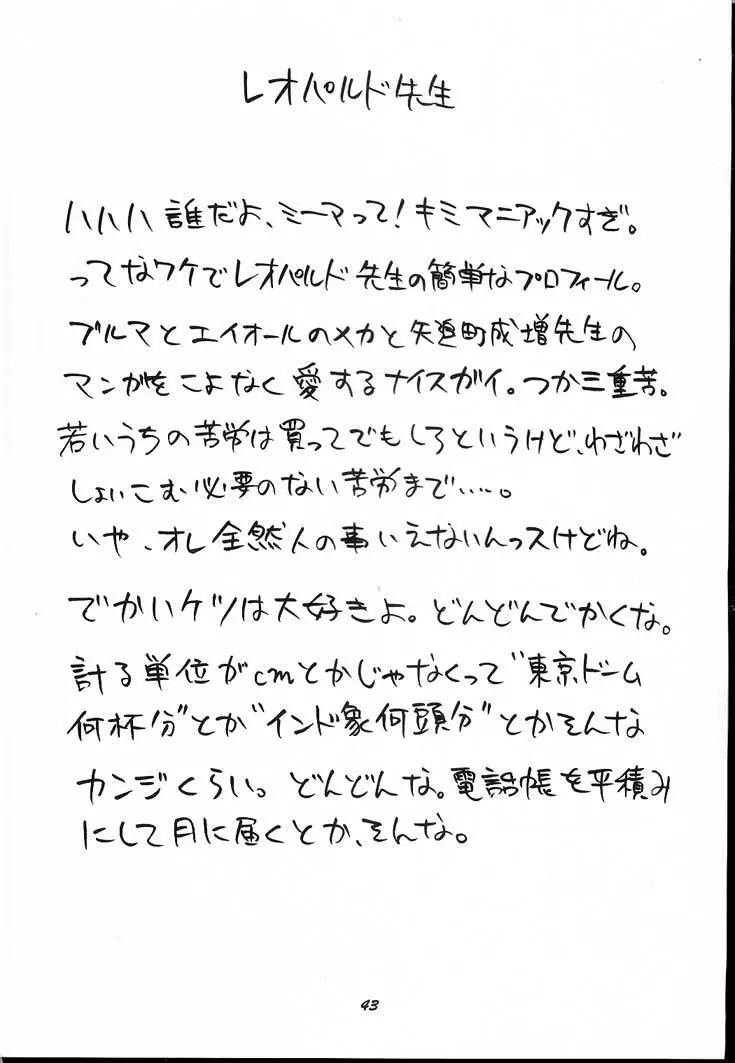 レオパルド先生
ハハハ誰だよ、ミーマって!キミマニアックすぎ。
ってなワケでレオパルド先生の簡単なプロフィール。
ブルマとエイオールのメカと矢追町成増先生の
マンガをこよなく愛するナイスガイ。つか三重苦。
若いうちの苦労は買ってでもしろというけど、わざわざ
しょいこむ必要のない苦労まで……。
いや、オレ全然人の事いえないんっスけどね。
でかいケツは大好きよ。どんどんでかくな。
計る単位がcmとかじゃなくって“東京ドーム
何杯分”とか“インド象何頭分”とかそんな
カンジくらい。どんどんな。電話帳を平積み
にして月に届くとか、そんな。
43